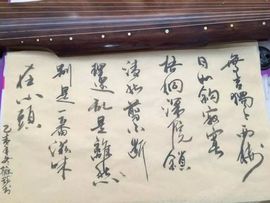 無言獨上西樓
月如鈎寂寞
梧桐深院鎖
清秋剪不断
理還亂是離愁
别是一番滋味
在心頭
己亥